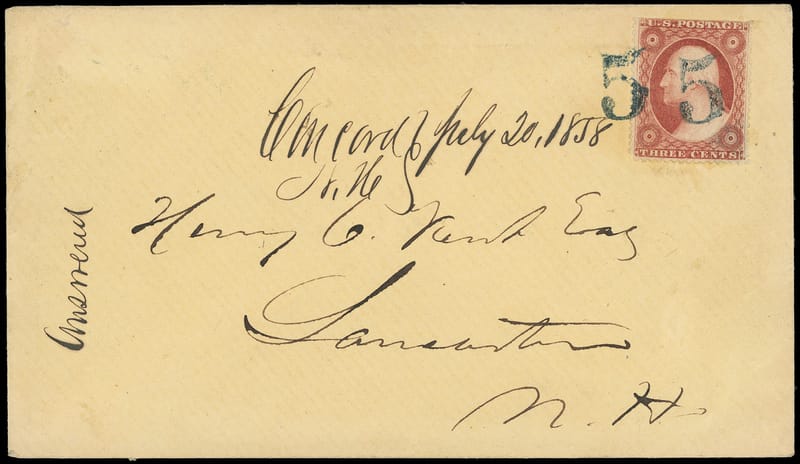 U.S. POSTAGE
5 5
THREE CENTS
Concord July 20, 1858
N. H.
Henry C. Kent Esq
Lancaster
N. H.
Answered